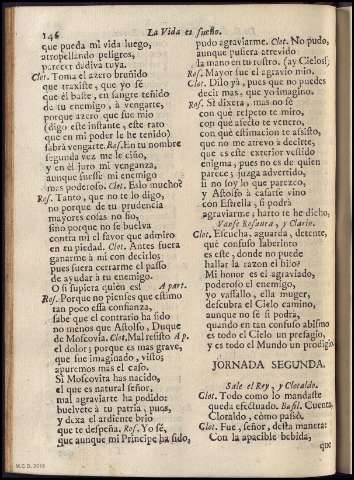 146
La Vida es sueño.
que pueda mi vida luego,
atropellando peligros,
parecer dadiva tuya.
Clot. Toma el azero bruñido
que traxiste, que yo sé
que él baste, en sangre teñido
de tu enemigo, à vengarte,
porque azero que fue mio
(digo este instante, este rato
que en mi poder le he tenido)
sabrà vengarte. Ros. En tu nombre
segunda vez me le ciño,
y en él juro mi venganza,
aunque fuesse mi enemigo
mas poderoso. Clot. Eslo mucho?
Ros. Tanto, que no te lo digo,
no porque de tu prudencia
mayores cosas no fio,
sino porque no se buelva
contra mi el favor que admiro
en tu piedad. Clot. Antes fuera
ganarme à mi con decirlo;
pues fuera cerrarme el passo
de ayudar à tu enemigo.
O si supiera quien es! A part.
Ros. Porque no pienses que estimo
tan poco essa confianza,
sabe que el contrario ha sido
no menos que Astolfo, Duque
de Moscovia. Clot. Mal resisto A p.
el dolor; porque es mas grave,
que fue imaginado, visto;
apuremos mas el caso.
Si Moscovita has nacido,
el que es natural señor,
mal agraviarte ha podido:
buelvete à tu patria, pues,
y dexa el ardiente brio
que te despeña. Ros. Yo sé,
que aunque mi Principe ha sido,
pudo agraviarme. Clot. No pudo,
aunque pusiera atrevido
la mano en tu rostro. (ay Cielos!)
Ros. Mayor fue el agravio mio.
Clot. Dilo yà, pues que no puedes
decir mas, que yo imagino.
Ros. Sí dixera, mas no sé
con què respeto te miro,
con què afecto te venero,
con què estimacion te assisto,
que no me atrevo à decirte,
que es este exterior vestido
enigma, pues no es de quien
parece; juzga advertido,
si no soy lo que parezco,
y Astolfo à casarse vino
con Estrella, si podrà
agraviarme; harto te he dicho,
Vanse Rosaura, y Clarin.
Clot. Escucha, aguarda, detente,
què confuso laberinto
es este, donde no puede
hallar la razon el hilo?
Mi honor es el agraviado,
poderoso el enemigo,
yo vassallo, ella muger,
descubra el Cielo camino,
aunque no sé si podrà,
quando en tan confuso abismo
es todo el Cielo un presagio,
y es todo el Mundo un prodigio.
JORNADA SEGUNDA.
Sale el Rey, y Clotaldo.
Clot. Todo como lo mandaste
queda efectuado. Basil. Cuenta,
Clotaldo, còmo passò.
Clot. Fue, señor, desta manera:
Con la apacible bebida,
que
M.C.D. 2018